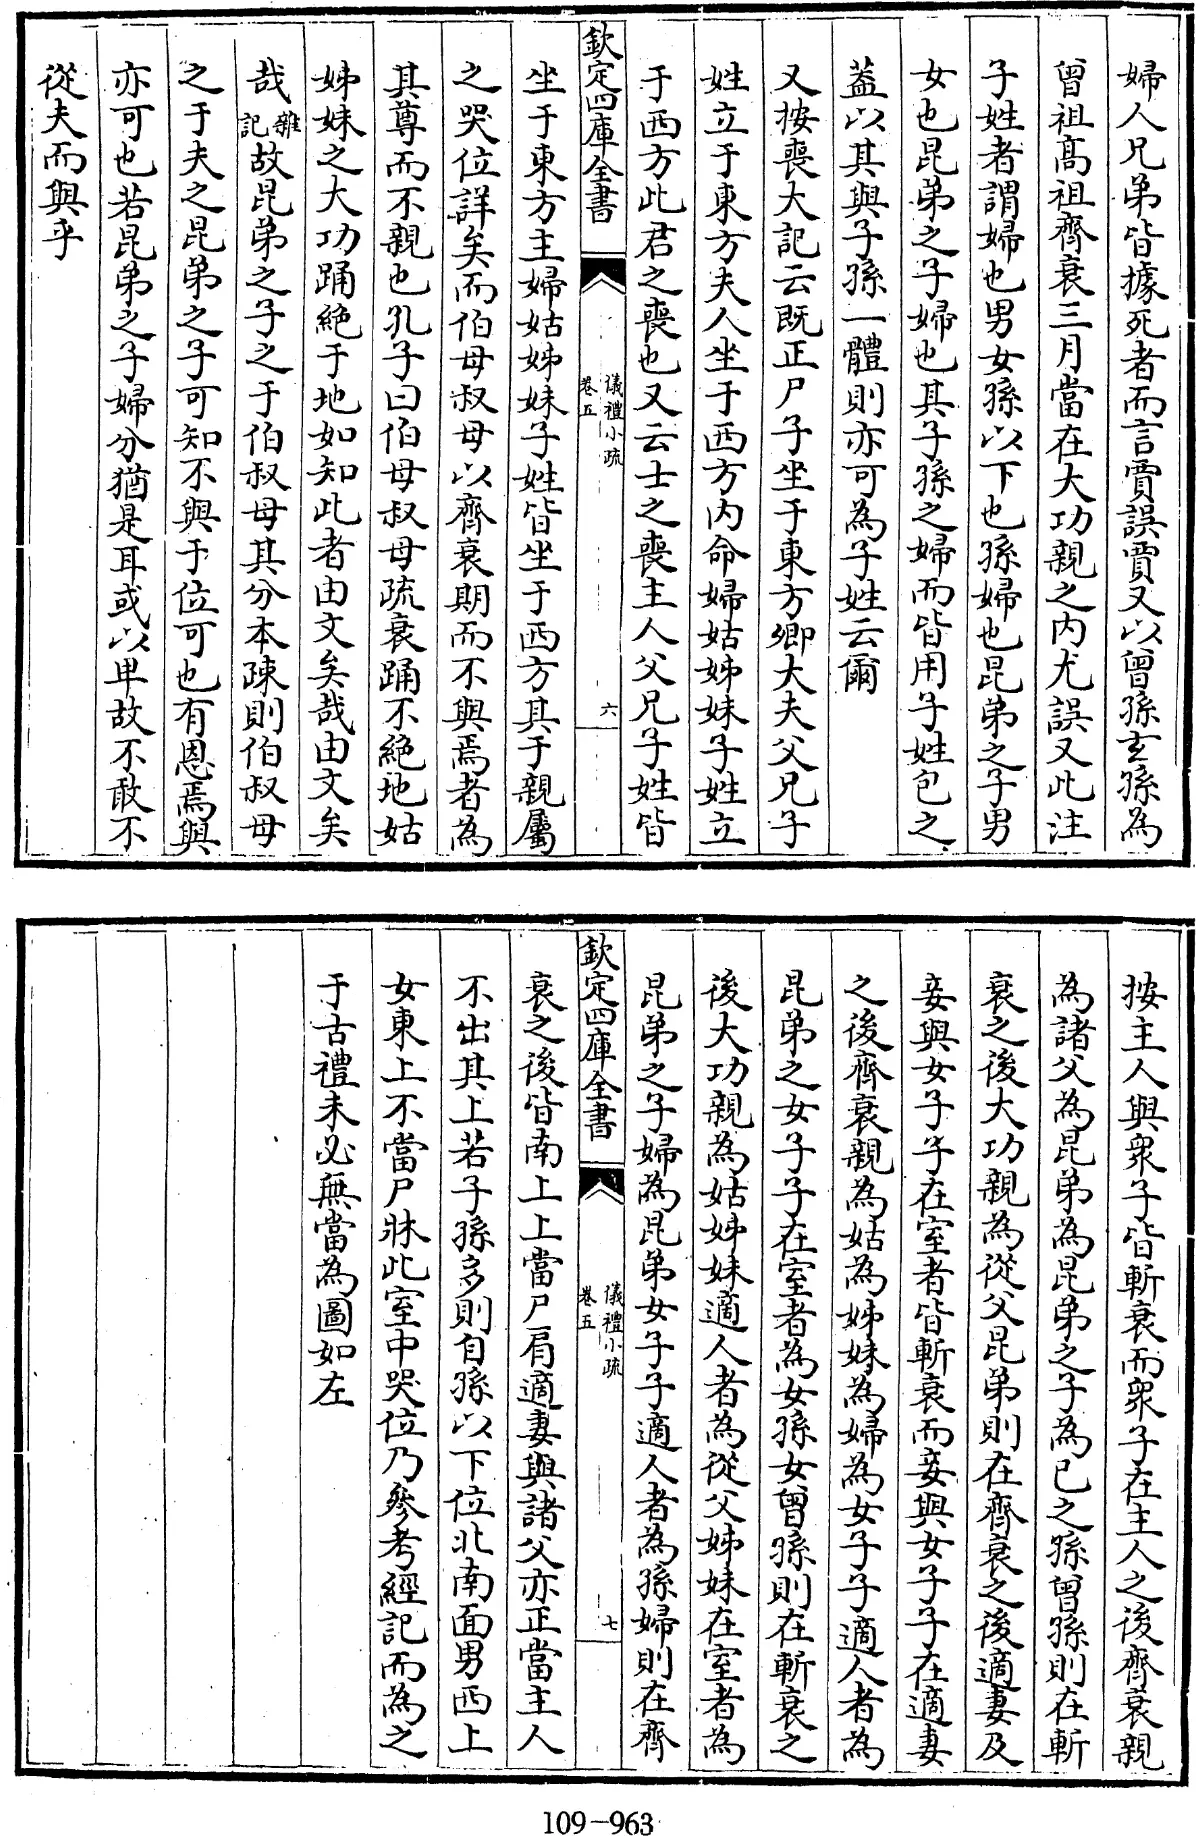 婦人兄弟皆據死者而言賈誤賈又以曾孫玄孫為
曾祖髙祖齊衰三月當在大功親之内尤誤又此注
子姓者謂婦也男女孫以下也孫婦也昆弟之子男
女也昆弟之子婦也其子孫之婦而皆用子姓包之
葢以其與子孫一體則亦可為子姓云爾
又按喪大記云既正尸子坐于東方卿大夫父兄子
姓立于東方夫人坐于西方内命婦姑姊妹子姓立
于西方此君之喪也又云士之喪主人父兄子姓皆
欽定四庫全書
儀禮小疏
卷五
六
坐于東方主婦姑姊妹子姓皆坐于西方其于親屬
之哭位詳矣而伯母叔母以齊衰期而不與焉者為
其尊而不親也孔子曰伯母叔母疏衰踊不絶地姑
姊妹之大功踊絶于地如知此者由文矣哉由文矣
哉雜記故昆弟之子之于伯叔母其分本疎則伯叔母
之于夫之昆弟之子可知不與于位可也有恩焉與
亦可也若昆弟之子婦分猶是耳或以卑故不敢不
從夫而與乎
按主人與衆子皆斬衰而衆子在主人之後齊衰親
為諸父為昆弟為昆弟之子為已之孫曾孫則在斬
衰之後大功親為從父昆弟則在齊衰之後適妻及
妾與女子子在室者皆斬衰而妾與女子子在適妻
之後齊衰親為姑為姊妹為婦為女子子適人者為
昆弟之女子子在室者為女孫女曾孫則在斬衰之
後大功親為姑姊妹適人者為從父姊妹在室者為
昆弟之子婦為昆弟女子子適人者為孫婦則在齊
欽定四庫全書
儀禮小疏
卷五
七
衰之後皆南上上當尸肩適妻與諸父亦正當主人
不出其上若子孫多則自孫以下位北南面男西上
女東上不當尸牀此室中哭位乃參考經記而為之
于古禮未必無當為圖如左
109-963